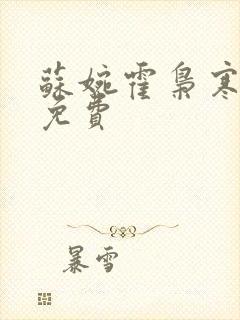 蘇婉霍梟寒
免費
暴雪